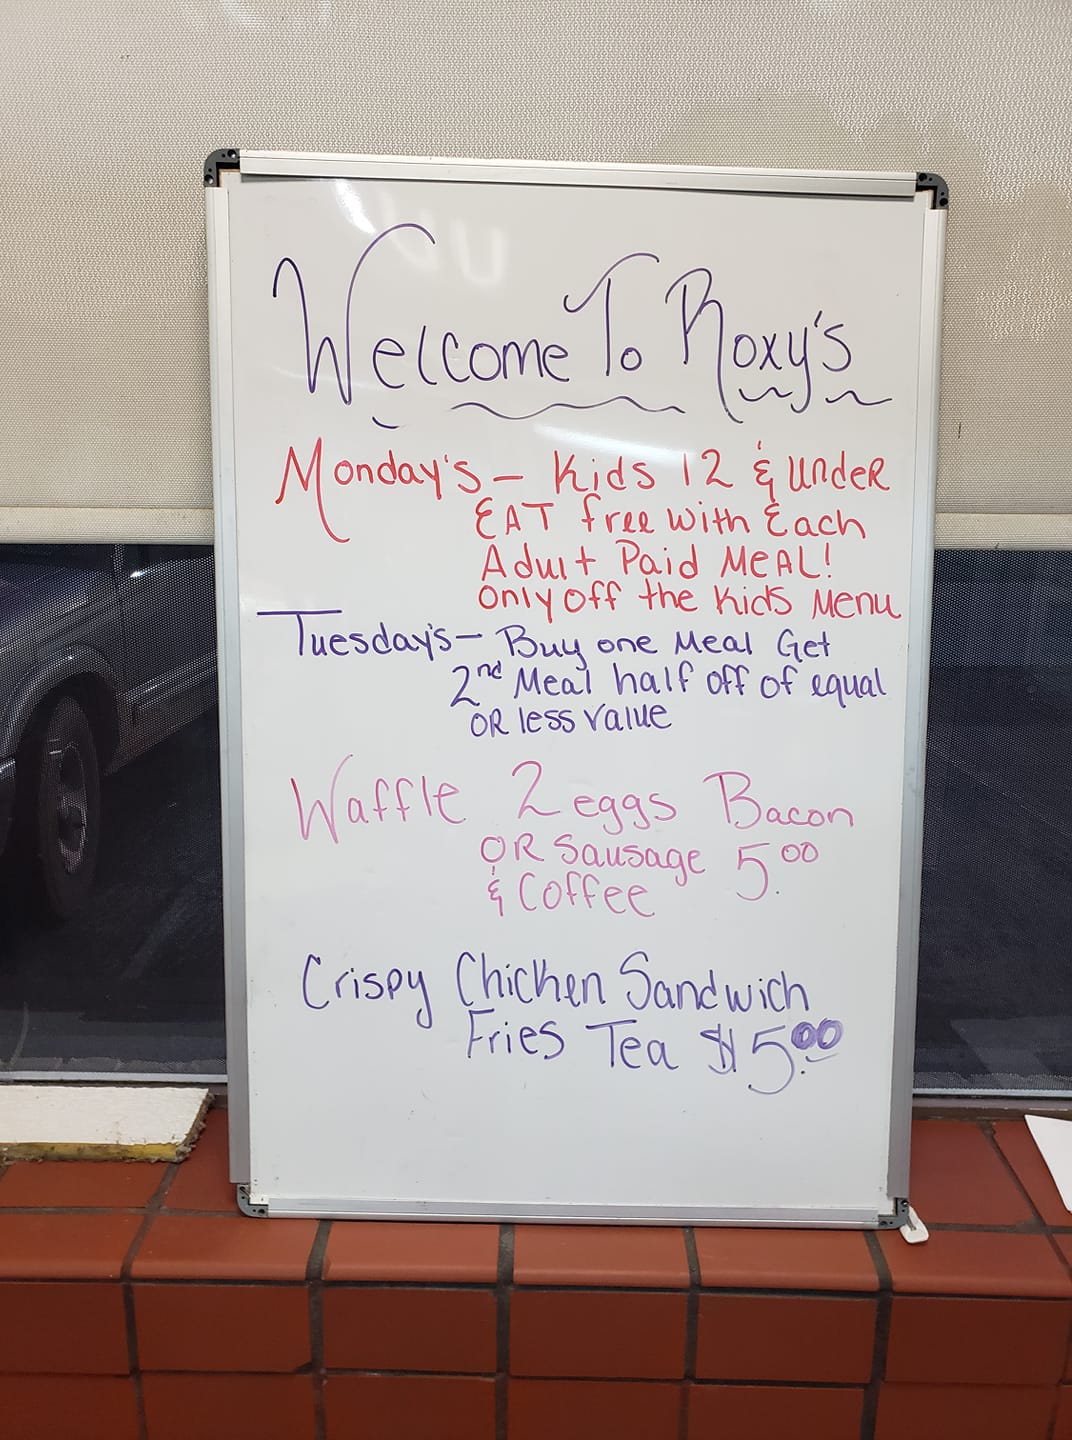 Welcome To Roxy's
Monday's - Kids 12 & Under
EAT free with Each
Adult Paid MEAL!
Only off the Kids Menu
Tuesday's - Buy one Meal Get
2nd Meal half off of equal
OR less value
Waffle 2 eggs Bacon
OR Sausage 5.00
& Coffee
Crispy Chicken Sandwich
Fries Tea $5.00